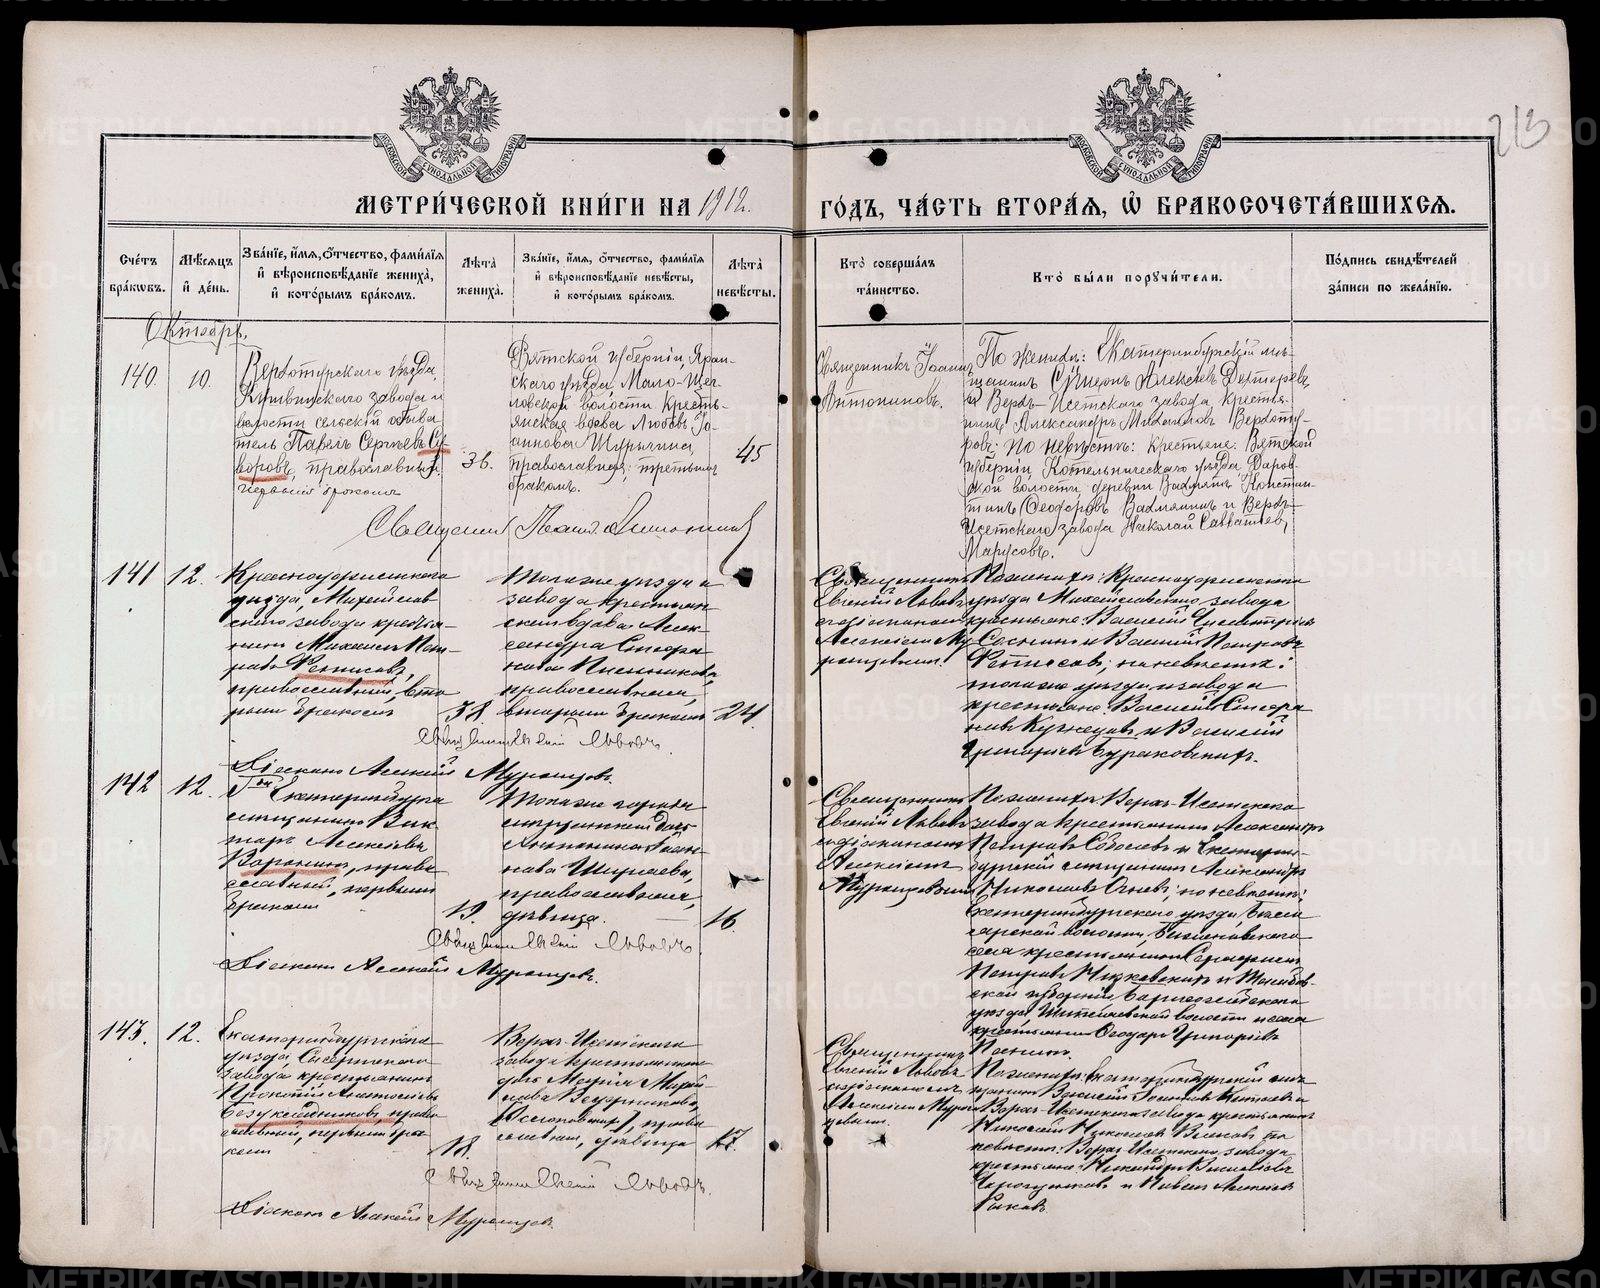 МЕТРИ́ЧЕСКОЙ КНИ́ГИ НА 1912.
ГО́ДЪ, ЧА́СТЬ ВТОРА́Я, Ѡ БРАКОСОЧЕТА́ВШИХСЯ.
213
МОСКОВСКОЙ СУНОДАЛЬНОЙ ТИПОГРАФІИ
МОСКОВСКОЙ СУНОДАЛЬНОЙ ТИПОГРАФІИ
Сче́тъ бра́кѡвъ.
Мѣ́сяцъ и де́нь.
Зва́нїе, и́мя, о́тчество, фами́лїя и вѣроисповѣ́данїе жениха̀, и кото́рымъ бра́комъ.
Лѣ́та жениха̀.
Зва́нїе, и́мя, о́тчество, фами́лїя и вѣроисповѣ́данїе невѣ́сты, и кото́рымъ бра́комъ.
Лѣ́та невѣ́сты.
Кто̀ соверша́лъ та́инство.
Кто̀ бы́ли порꙋчи́тели.
По́дпись свидѣ́телей за́писи по жела́нїю.
Октябрь.
140.
10.
Верхотурскаго уѣзда,
Кушвинскаго завода и
волости сельскій обыва
тель Павелъ Сергѣевъ Су-
воровъ, православный,
первымъ бракомъ
36.
Вятской губерніи, Яран-
скаго уѣзда, Мало-Щег-
ловской волости кресть-
янская вдова Любовь Іо-
аннова Шурыгина,
православная, третьимъ
бракомъ.
45
Священникъ Іоаннъ
Антониновъ.
По женихѣ: Екатеринбургскій мѣ-
щанинъ Симеонъ Алексѣевъ Дехтеревъ
и Верхъ-Исетскаго завода крестья-
нинъ Александръ Михайловъ Верхоту-
ровъ; по невѣстѣ: крестьяне: Вятской
губерніи, Котельническаго уѣзда, Даров-
ской волости деревни Вахмянъ Констан-
тинъ Ѳеодоровъ Вахмянинъ и Верхъ-
Исетскаго завода Николай Савватіевъ
Марусовъ.
Священникъ Іоаннъ Антониновъ
141
12.
Красноуфимскаго
уѣзда, Михайлов
скаго завода крестья-
нинъ Михаилъ Пет-
ровъ Фетисовъ,
православный, вто
рымъ бракомъ
38.
Того же уѣзда и
завода крестьян
ская вдова Алек
сандра Стефа
нова Писчикова,
православная,
вторымъ бракомъ
24
Священникъ
Евгеній Львовъ
съ діакономъ
Алексіемъ Му
ромцевымъ
По женихѣ: Красноуфимскаго
уѣзда Михайловскаго завода
крестьяне: Василій
и Василій Петровъ
Фетисовъ; по невѣстѣ:
того же уѣзда и завода
крестьяне: Василій Стефа
новъ Кузнецовъ и Василій
Григорьевъ Бураковскихъ.
Священникъ Евгеній Львовъ.
Діаконъ Алексій Муромцевъ.
142
12.
Гор. Екатеринбурга
мѣщанинъ Вик
торъ Алексѣевъ
Воронинъ, право
славный, первымъ
бракомъ
19.
Того же города
мѣщанская дочь
Антонина Іоан-
нова Ширяева,
православная,
дѣвица.
16
Священникъ
Евгеній Львовъ
съ діакономъ
Алексіемъ
Муромцевымъ
По женихѣ: Верхъ-Исетскаго
завода крестьянинъ Александръ
Петровъ Соболевъ и Екатерин-
бургскій мѣщанинъ Александръ
Николаевъ Агеевъ; по невѣстѣ:
Екатеринбургскаго уѣзда,
крестьянинъ Серафимъ
Петровъ Низковскихъ и Тамбов-
ской губерніи Борисоглѣбскаго
уѣзда,
крестьянинъ Ѳеодоръ Григорьевъ
Священникъ Евгеній Львовъ.
Діаконъ Алексій Муромцевъ.
143.
12.
Екатеринбургскаго
уѣзда, Сысертскаго
завода крестьянинъ
Прокопій Анатоліевъ
Безукладниковъ, право
славный, первымъ бра
комъ
18.
Верхъ-Исетскаго
завода крестьянская
дочь Марія Михай-
лова
православная, дѣвица
17.
Священникъ
Евгеній Львовъ
съ діакономъ
Алексіемъ Муром
цевымъ.
По женихѣ: Екатеринбургскій мѣ
щанинъ Василій
Верхъ-Исетскаго завода крестьянинъ
Николай Николаевъ Волковъ; по
невѣстѣ: Верхъ-Исетскаго завода
крестьяне: Никандръ Васильевъ
и Павелъ Алексѣевъ
Рыковъ.
Священникъ Евгеній Львовъ.
Діаконъ Алексій Муромцевъ.
METRIKI.GASO-URAL.RU